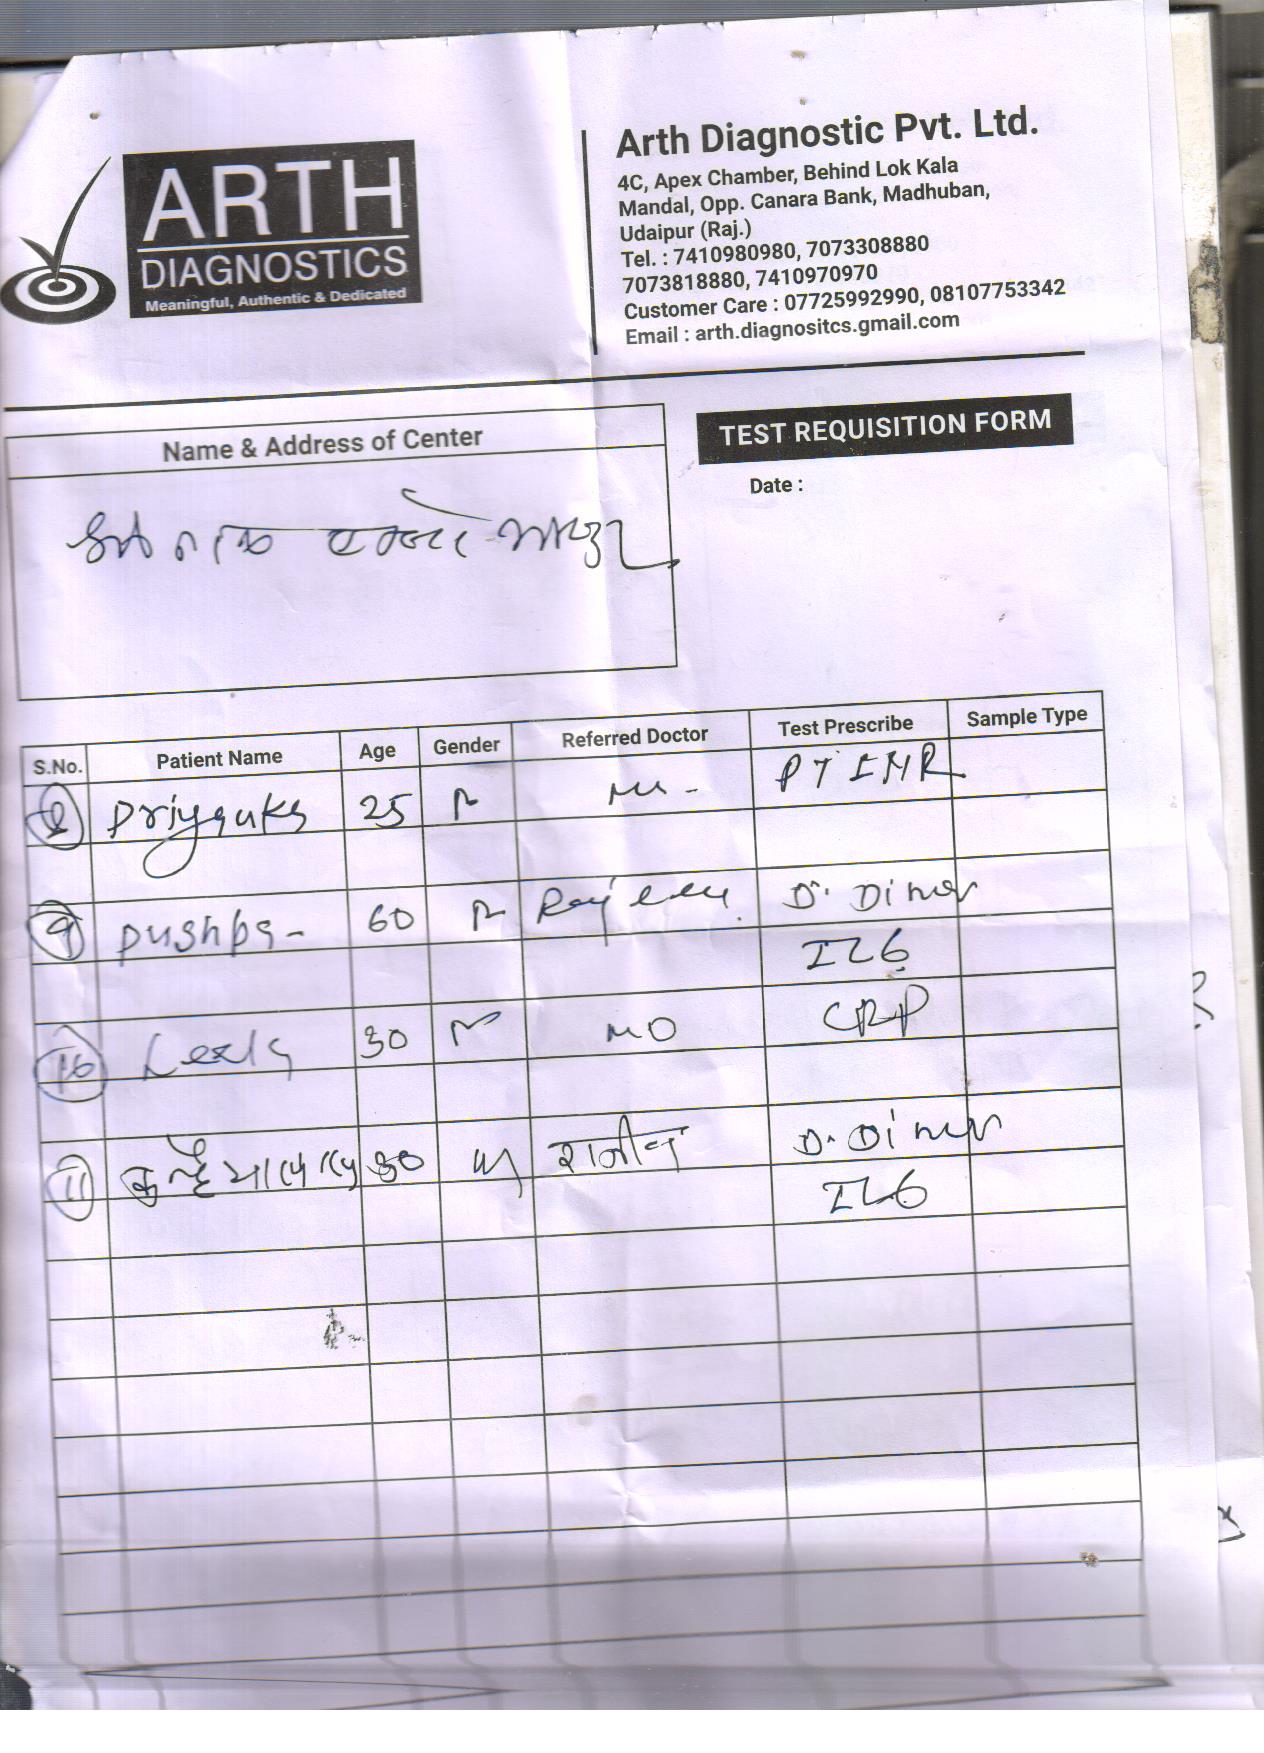 ARTH
DIAGNOSTICS
Meaningful, Authentic & Dedicated
Arth Diagnostic Pvt. Ltd.
4C, Apex Chamber, Behind Lok Kala
Mandal, Opp. Canara Bank, Madhuban,
Udaipur (Raj.)
Tel. : 7410980980, 7073308880
7073818880, 7410970970
Customer Care : 07725992990, 08107753342
Email : arth.diagnositcs.gmail.com
Name & Address of Center
TEST REQUISITION FORM
Date :
S.No. Patient Name Age Gender Referred Doctor Test Prescribe Sample Type
Priyanka 25 PT INR
9 Pushpa - 60 D. Dimer
IL6
10 Leela 30 MO CRP
11 30 D. Dimer
IL6